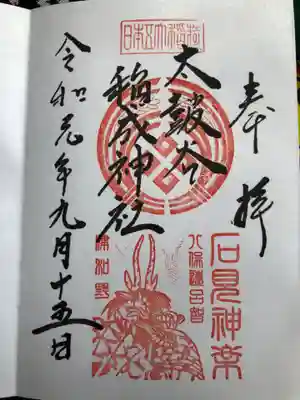 奉拝
太皷谷
稲成神社
令和元年九月十五日
日本五大稲荷
石見神楽
八保膳呂智
津和野